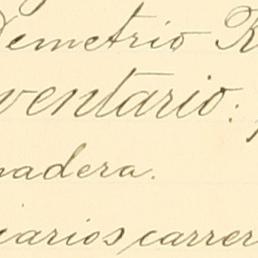 Demetrio R
ventario:
nadera.
iarios carrer